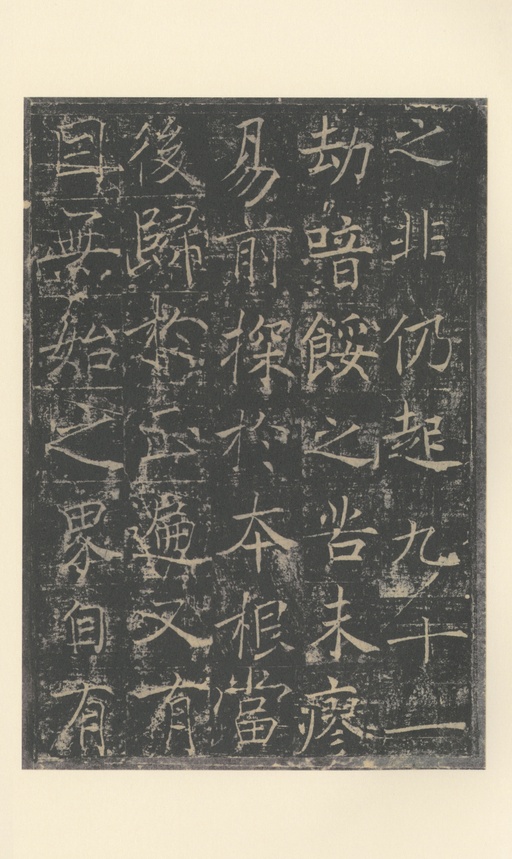 之非仍起九十一
劫暗餒之苦未瘳
易前探於本根當
後歸於正遍又有
因無始之界自有